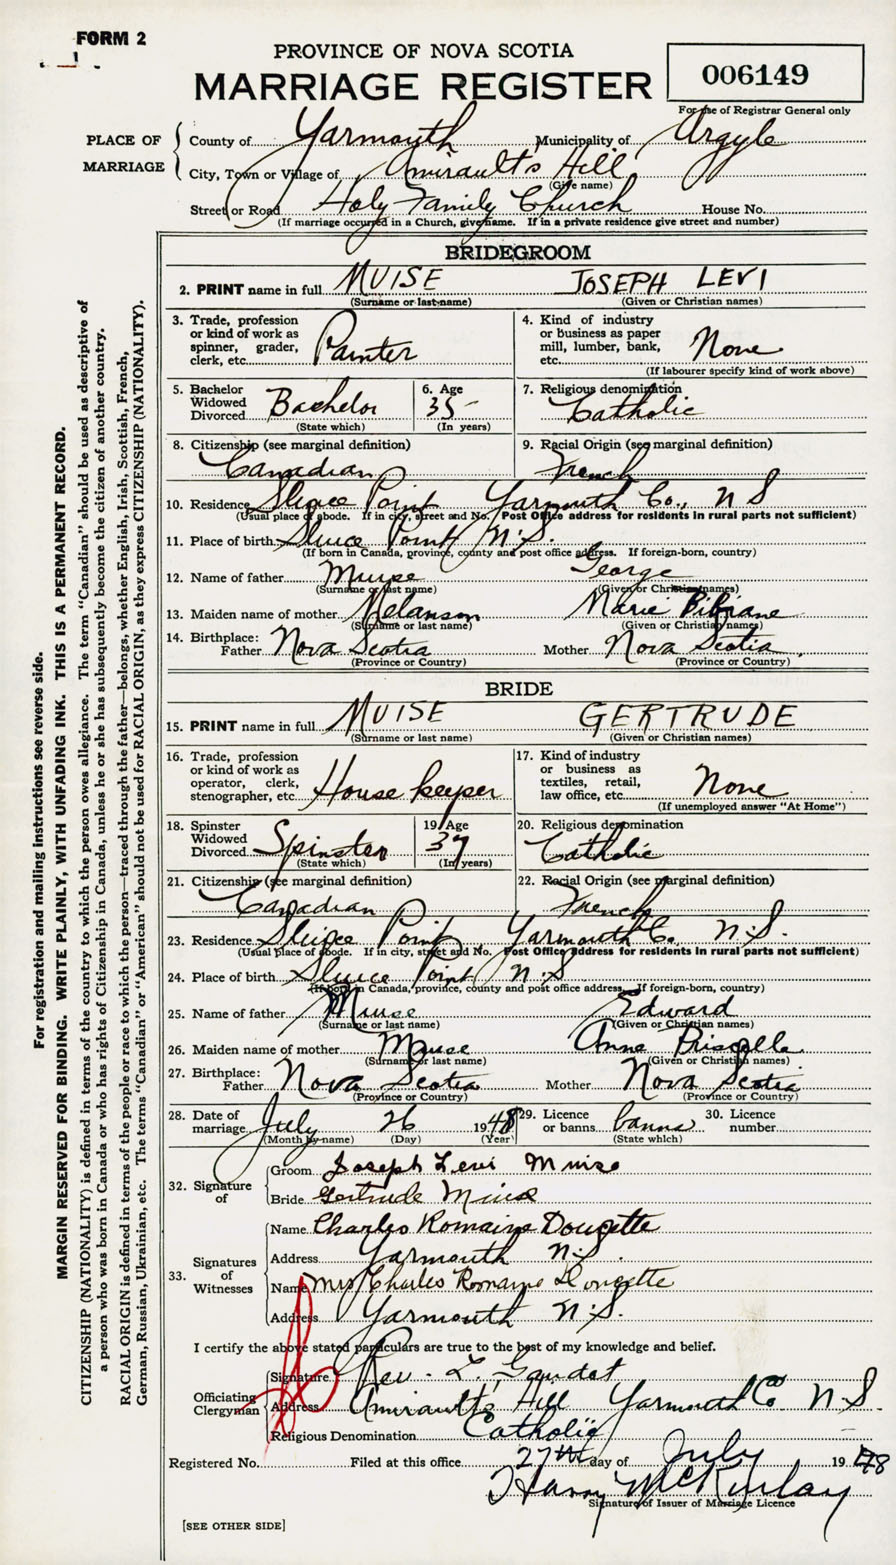 FORM 2
1
PROVINCE OF NOVA SCOTIA
MARRIAGE REGISTER
006149
For use of Registrar General only
PLACE OF MARRIAGE
County of Yarmouth Municipality of Argyle
City, Town or Village of Amirault's Hill
(Give name)
Street or Road Holy Family Church House No.
(If marriage occurred in a Church, give name. If in a private residence give street and number)
BRIDEGROOM
2. PRINT name in full MUISE JOSEPH LEVI
(Surname or last name) (Given or Christian names)
3. Trade, profession or kind of work as spinner, grader, clerk, etc. Painter
4. Kind of industry or business as paper mill, lumber, bank, etc. None
(If labourer specify kind of work above)
5. Bachelor Widowed Divorced Bachelor
(State which)
6. Age 35
(In years)
7. Religious denomination
Catholic
8. Citizenship (see marginal definition)
Canadian
9. Racial Origin (see marginal definition)
French
10. Residence Sluice Point Yarmouth Co., N S
(Usual place of abode. If in city, street and No. Post Office address for residents in rural parts not sufficient)
11. Place of birth Sluice Point N.S.
(If born in Canada, province, county and post office address. If foreign-born, country)
12. Name of father Muise George
(Surname or last name) (Given or Christian names)
13. Maiden name of mother Melanson Marie Bibiane
(Surname or last name) (Given or Christian names)
14. Birthplace:
Father Nova Scotia Mother Nova Scotia
(Province or Country) (Province or Country)
BRIDE
15. PRINT name in full MUISE GERTRUDE
(Surname or last name) (Given or Christian names)
16. Trade, profession or kind of work as operator, clerk, stenographer, etc. House keeper
17. Kind of industry or business as textiles, retail, law office, etc. None
(If unemployed answer "At Home")
18. Spinster Widowed Divorced Spinster
(State which)
19. Age 37
(In years)
20. Religious denomination
Catholic
21. Citizenship (see marginal definition)
Canadian
22. Racial Origin (see marginal definition)
French
23. Residence Sluice Point Yarmouth Co. N.S.
(Usual place of abode. If in city, street and No. Post Office address for residents in rural parts not sufficient)
24. Place of birth Sluice Point N.S
(If born in Canada, province, county and post office address. If foreign-born, country)
25. Name of father Muise Edward
(Surname or last name) (Given or Christian names)
26. Maiden name of mother Muise Anne Priscilla
(Surname or last name) (Given or Christian names)
27. Birthplace:
Father Nova Scotia Mother Nova Scotia
(Province or Country) (Province or Country)
28. Date of marriage July 26 1948
(Month by name) (Day) (Year)
29. Licence or banns banns
(State which)
30. Licence number
32. Signature of
Groom Joseph Levi Muise
Bride Gertrude Muise
33. Signatures of Witnesses
Name Charles Romaine Doucette
Address Yarmouth N.S.
Name Mrs Charles Romaine Doucette
Address Yarmouth N.S.
I certify the above stated particulars are true to the best of my knowledge and belief.
Officiating Clergyman
Signature Rev. L. Gaudet
Address Amirault's Hill Yarmouth Co N.S.
Religious Denomination Catholic
Registered No. Filed at this office 27th day of July 1948
Harry McKinlay
Signature of Issuer of Marriage Licence
[SEE OTHER SIDE]
For registration and mailing instructions see reverse side.
MARGIN RESERVED FOR BINDING. WRITE PLAINLY, WITH UNFADING INK. THIS IS A PERMANENT RECORD.
CITIZENSHIP (NATIONALITY) is defined in terms of the country to which the person owes allegiance. The term "Canadian" should be used as descriptive of
a person who was born in Canada or who has rights of Citizenship in Canada, unless he or she has subsequently become the citizen of another country.
RACIAL ORIGIN is defined in terms of the people or race to which the person—traced through the father—belongs, whether English, Irish, Scottish, French,
German, Russian, Ukrainian, etc. The terms "Canadian" or "American" should not be used for RACIAL ORIGIN, as they express CITIZENSHIP (NATIONALITY).